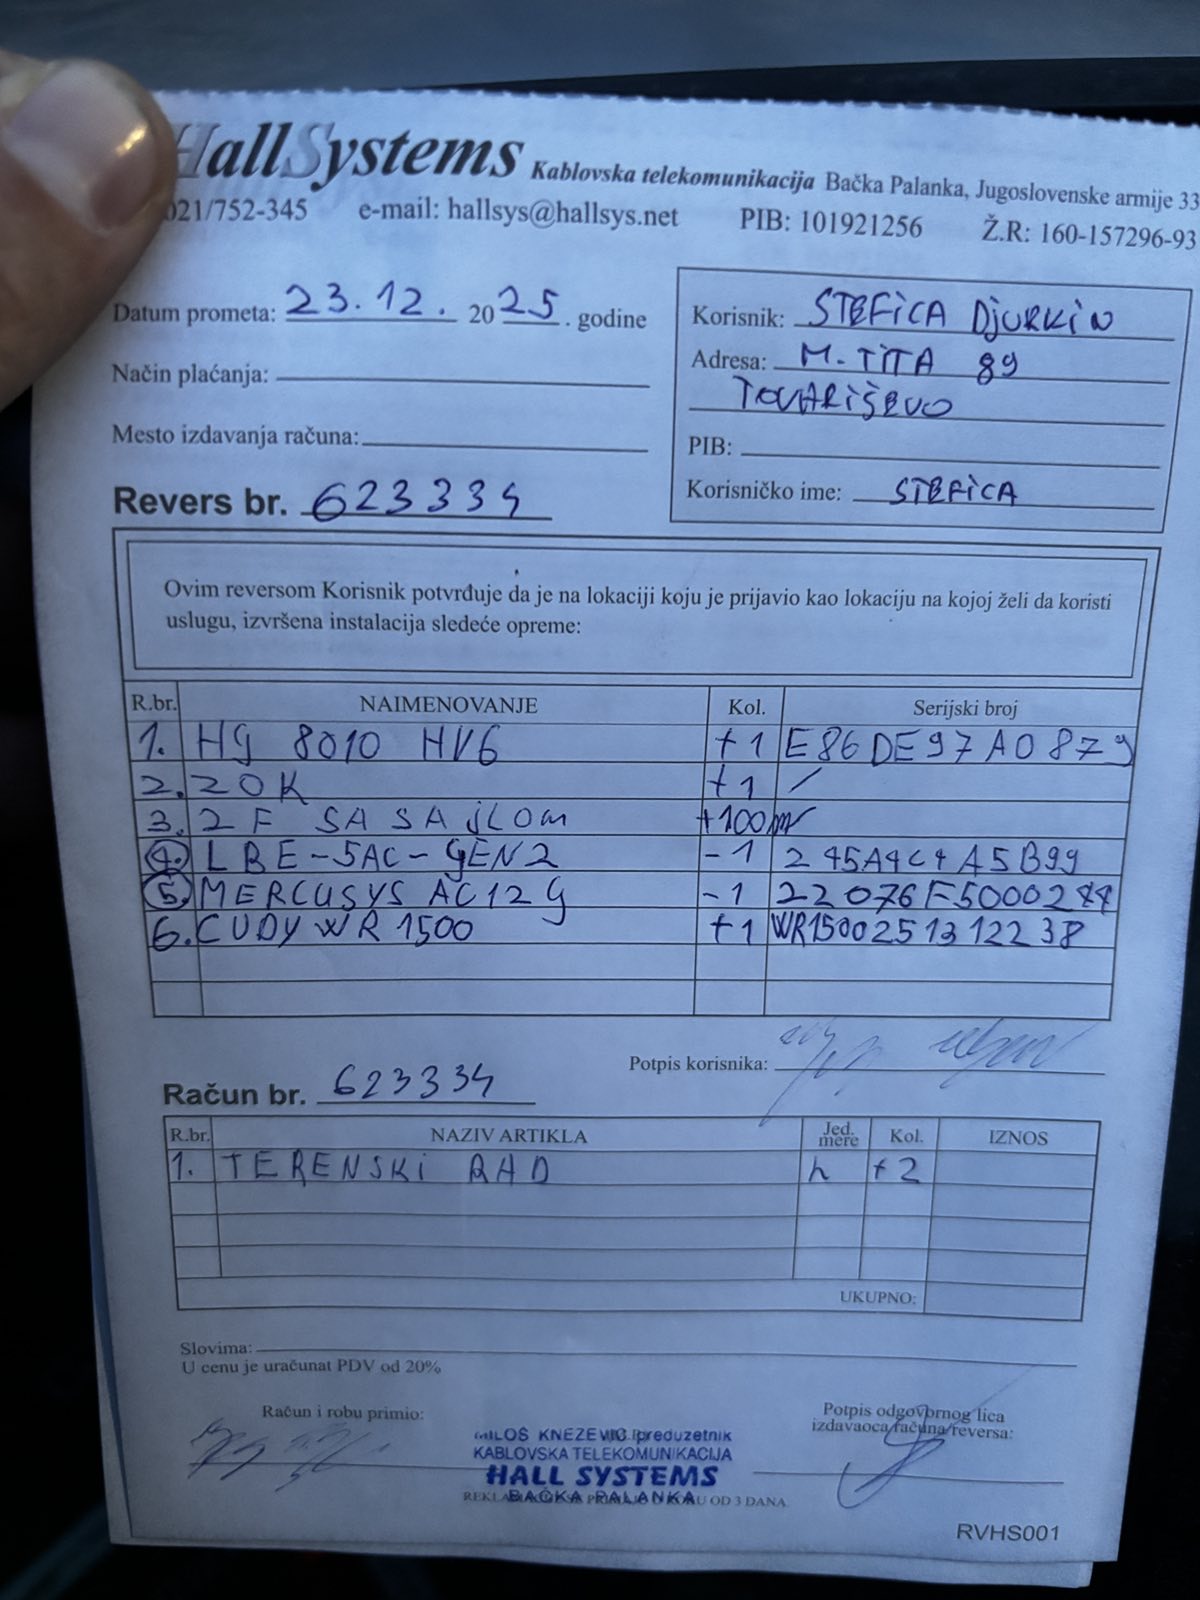 HallSystems Kablovska telekomunikacija Bačka Palanka, Jugoslovenske armije 33
021/752-345 e-mail: hallsys@hallsys.net PIB: 101921256 Ž.R: 160-157296-93
Datum prometa: 23.12. 2025. godine
Način plaćanja:
Mesto izdavanja računa:
Revers br. 623334
Korisnik: STEFICA DJURKIN
Adresa: M. TITA 89
TOVARIŠEVO
PIB:
Korisničko ime: STEFICA
Ovim reversom Korisnik potvrđuje da je na lokaciji koju je prijavio kao lokaciju na kojoj želi da koristi
uslugu, izvršena instalacija sledeće opreme:
R.br. NAIMENOVANJE Kol. Serijski broj
1. HG 8010 HV6 +1 E86DE97A0879
2. ZOK +1 /
3. 2F SA SAJLOM +100m
4. LBE-5AC-GEN2 -1 245A4C4A5B99
5. MERCUSYS AC12G -1 22076F5000244
6. CUDY WR 1500 +1 WR1500251312238
Potpis korisnika:
Račun br. 623334
R.br. NAZIV ARTIKLA Jed. mere Kol. IZNOS
1. TERENSKI RAD h +2
UKUPNO:
Slovima:
U cenu je uračunat PDV od 20%
Račun i robu primio:
Potpis odgovornog lica
izdavaoca računa/reversa:
MILOŠ KNEZEVIĆ preduzetnik
KABLOVSKA TELEKOMUNIKACIJA
HALL SYSTEMS
BAČKA PALANKA
OD 3 DANA
RVHS001